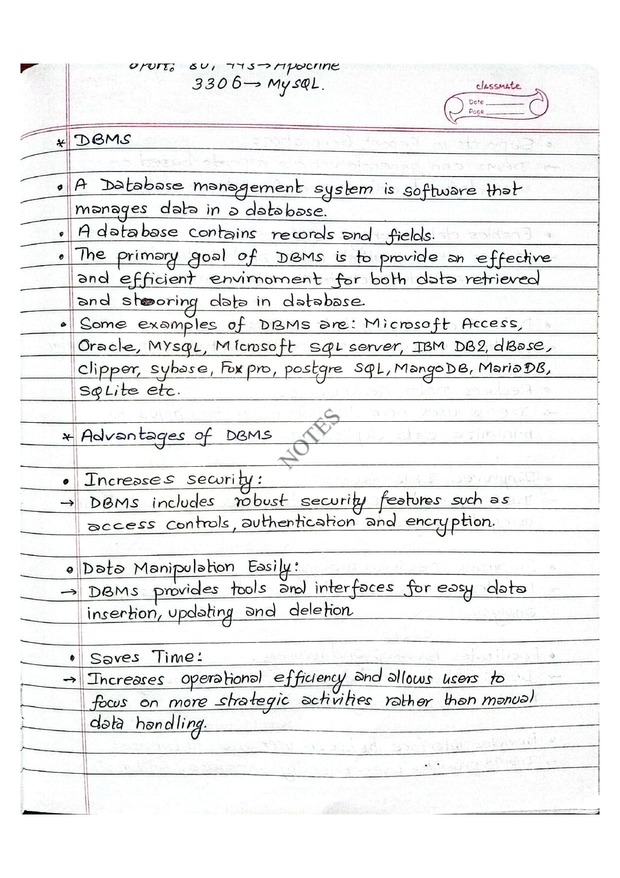 80, 443→Apache
3306→ MySQL.
classmate
Date
Page
* DBMS
• A Database management system is software that
manages data in a database.
• A database contains records and fields.
• The primary goal of DBMS is to provide an effective
and efficient envirnoment for both data retrieved
and storing data in database.
• Some examples of DBMS are: Microsoft Access,
Oracle, MYSQL, Microsoft SQL server, IBM DB2, dBase,
clipper, sybase, Foxpro, postgre SQL, MangoDB, MariaDB,
SQLite etc.
NOTES
* Advantages of DBMS
• Increases security:
→ DBMS includes robust security features such as
access controls, authentication and encryption.
• Data Manipulation Easily:
→ DBMS provides tools and interfaces for easy data
insertion, updating and deletion
• Saves Time:
→ Increases operational efficiency and allows users to
focus on more strategic activities rather than manual
data handling.